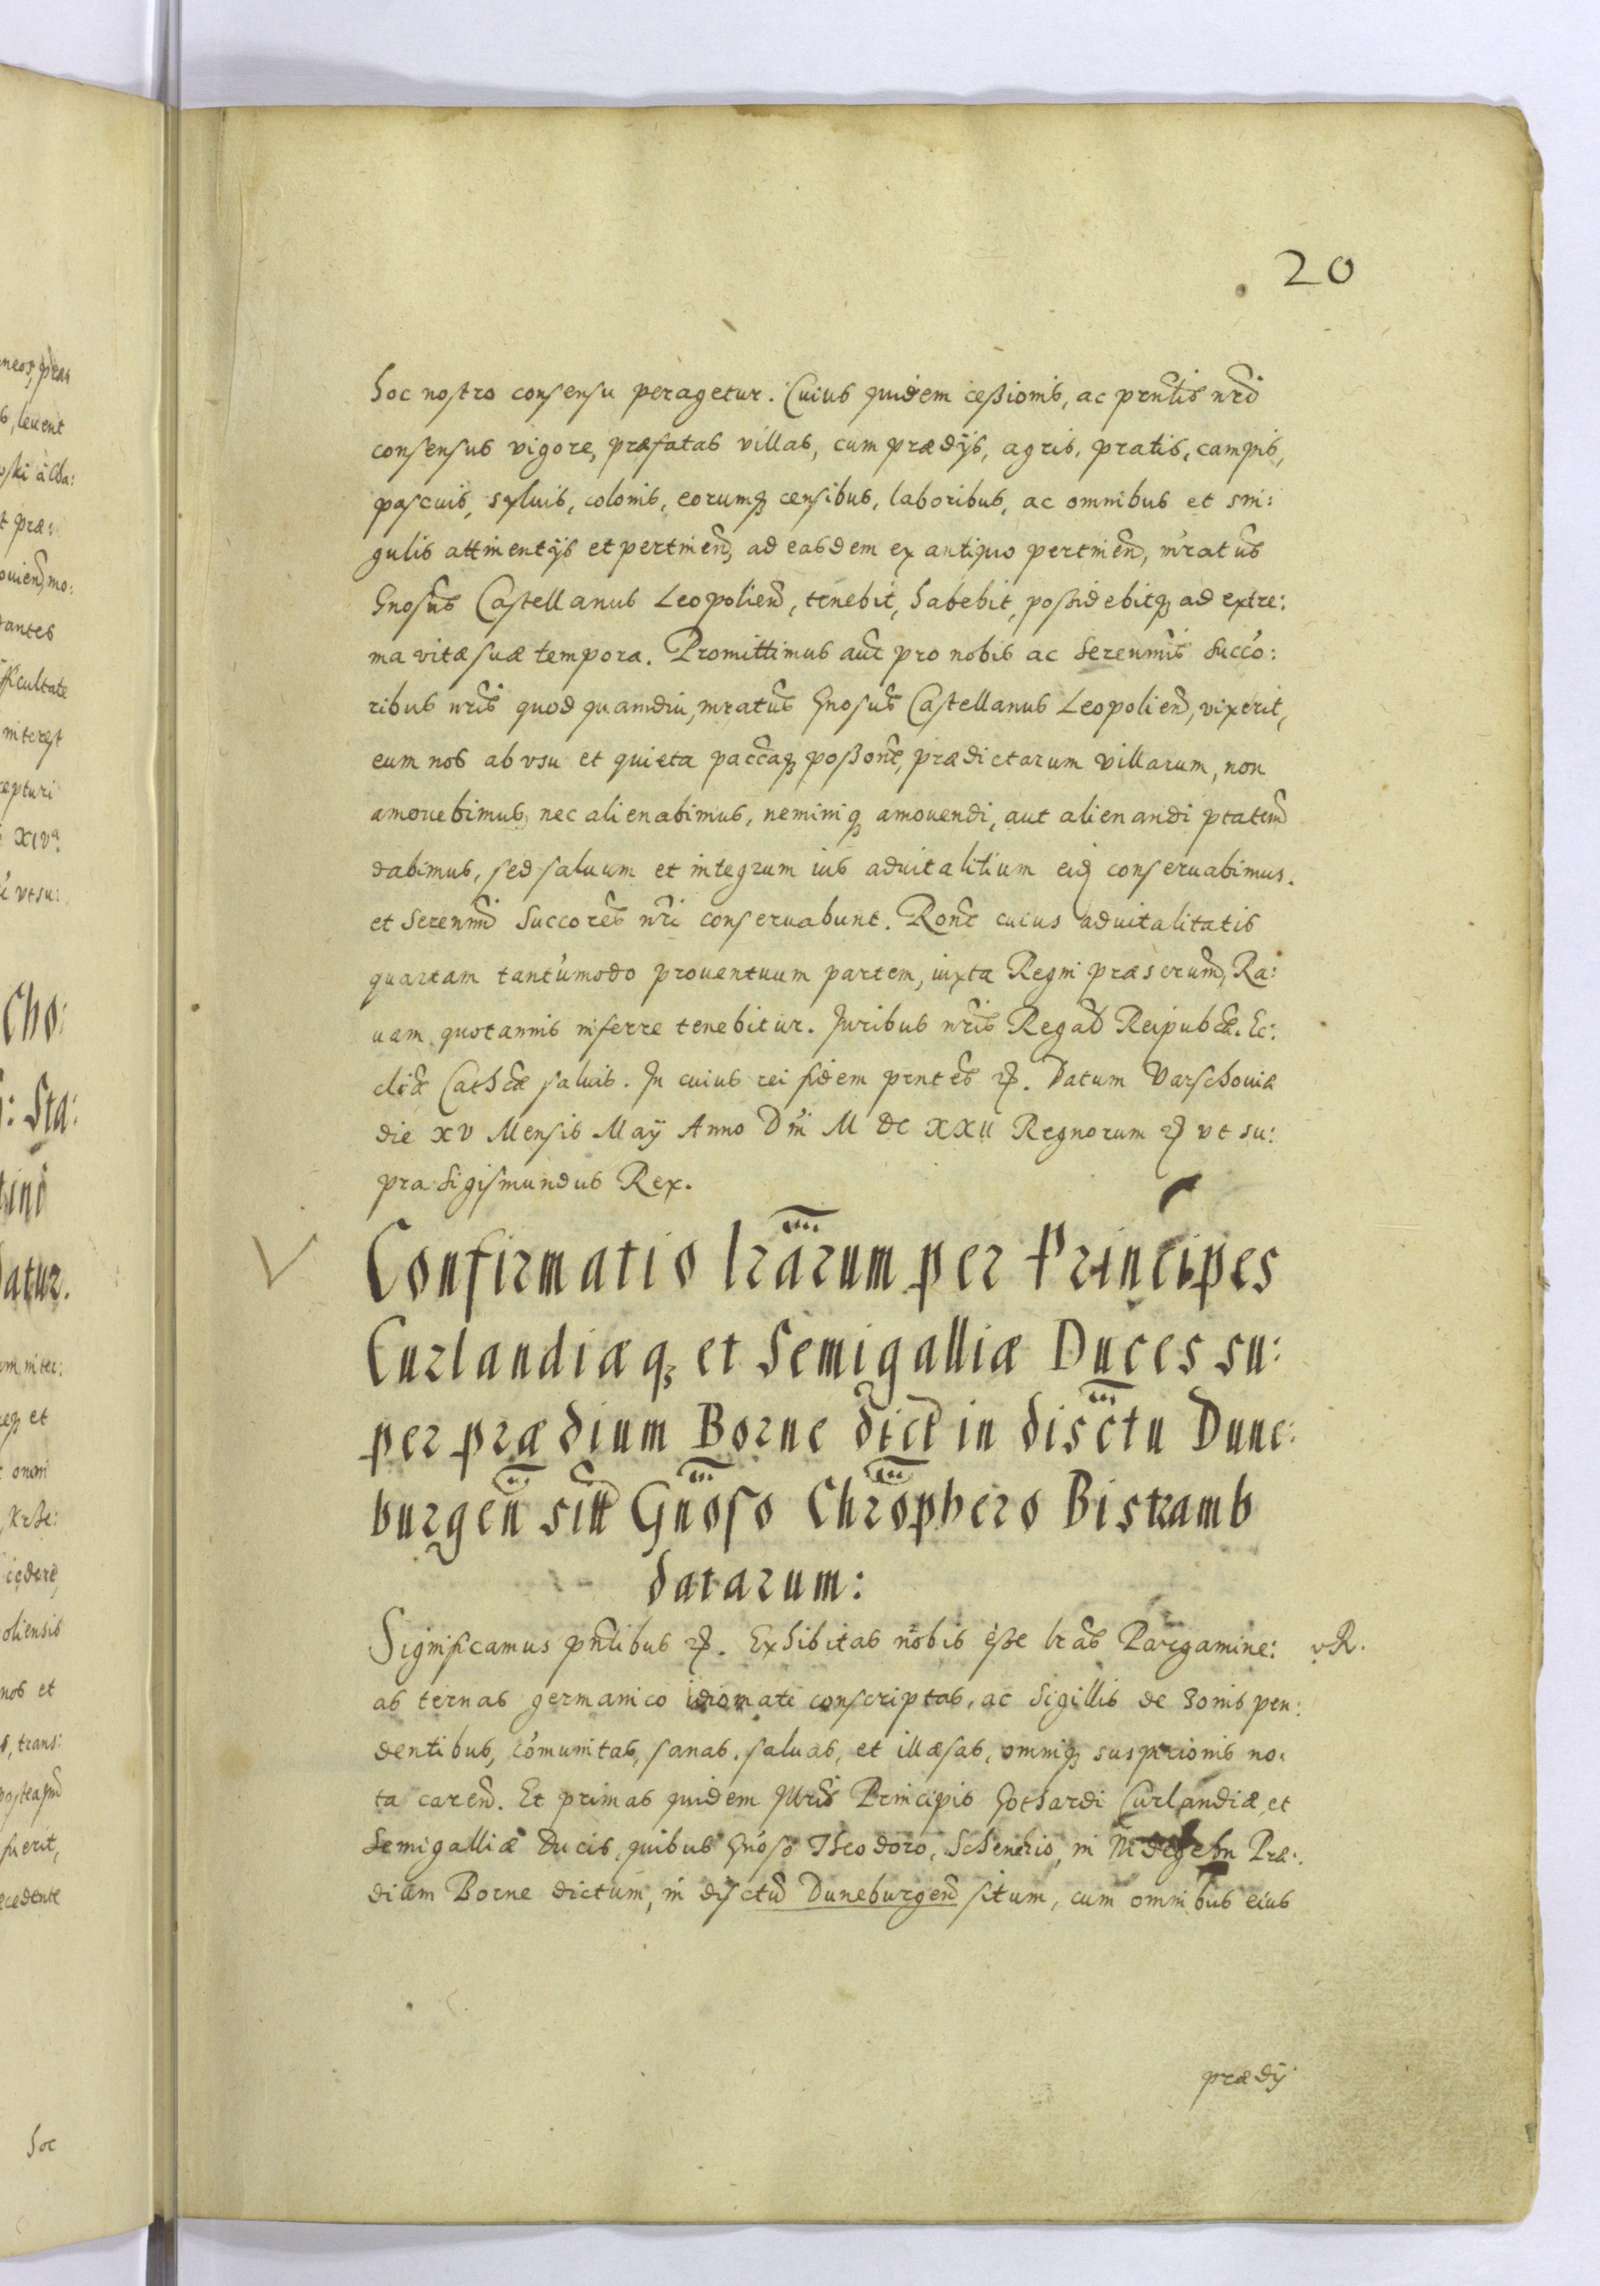 20
hoc nostro consensu peragetur. Cuius quidem ceßionis, ac prntis nri
consensus vigore, præfatas villas, cum prædijs, agris, pratis, campis,
pascuis, syluis, colonis, eorumq censibus, laboribus, ac omnibus et sin:
gulis attinentijs et pertinen, ad easdem ex antiquo pertinen, mratus
Gnosus Castellanus Leopolien, tenebit, habebit, poßidebitq ad extre:
ma vitæ suæ tempora. Promittimus aut pro nobis ac Serenmis Succo:
ribus nris quod quamdiu, mratus Gnosus Castellanus Leopolien, vixerit,
eum nos ab vsu et quieta paccaq poßone, prædictarum villarum, non
amouebimus, nec alienabimus, neminiq amouendi, aut alienandi ptatem
dabimus, sed saluum et integrum ius aduitalitium eiq conseruabimus.
et Serenmi Succores nri conseruabunt. Rone cuius aduitalitatis
quartam tantumodo prouentuum partem, iuxta Regni præscrum, Ra:
uam quotannis inferre tenebitur. Juribus nris Regalb Reipubcæ. Ec:
cliæ Cathcæ saluis. In cuius rei fidem prntes etc. Datum Varschouiæ
die XV Mensis Maij Anno Dni M DC XXII Regnorum etc vt su:
pra Sigismundus Rex.
Confirmatio lrarum per Principes
Curlandiæq et Semigalliæ Duces su:
per prædium Borne dict in disctu Dune:
burgen sitt Gnoso Chrophero Bistramb
datarum:
Significamus pntibus etc. Exhibitas nobis eße lras Pargamine: vR.
as ternas germanico idiomate conscriptas, ac Sigillis de Zonis pen:
dentibus, comunitas, sanas, saluas, et illæsas, omniq suspicionis no:
ta caren. Et primas quidem Illris Principis Gothardi Curlandiæ, et
Semigalliæ Ducis, quibus Gnoso Theodoro, Schenkio, in Præ:
dium Borne dictum, in disctu Duneburgen situm, cum omnibus eius
prædij